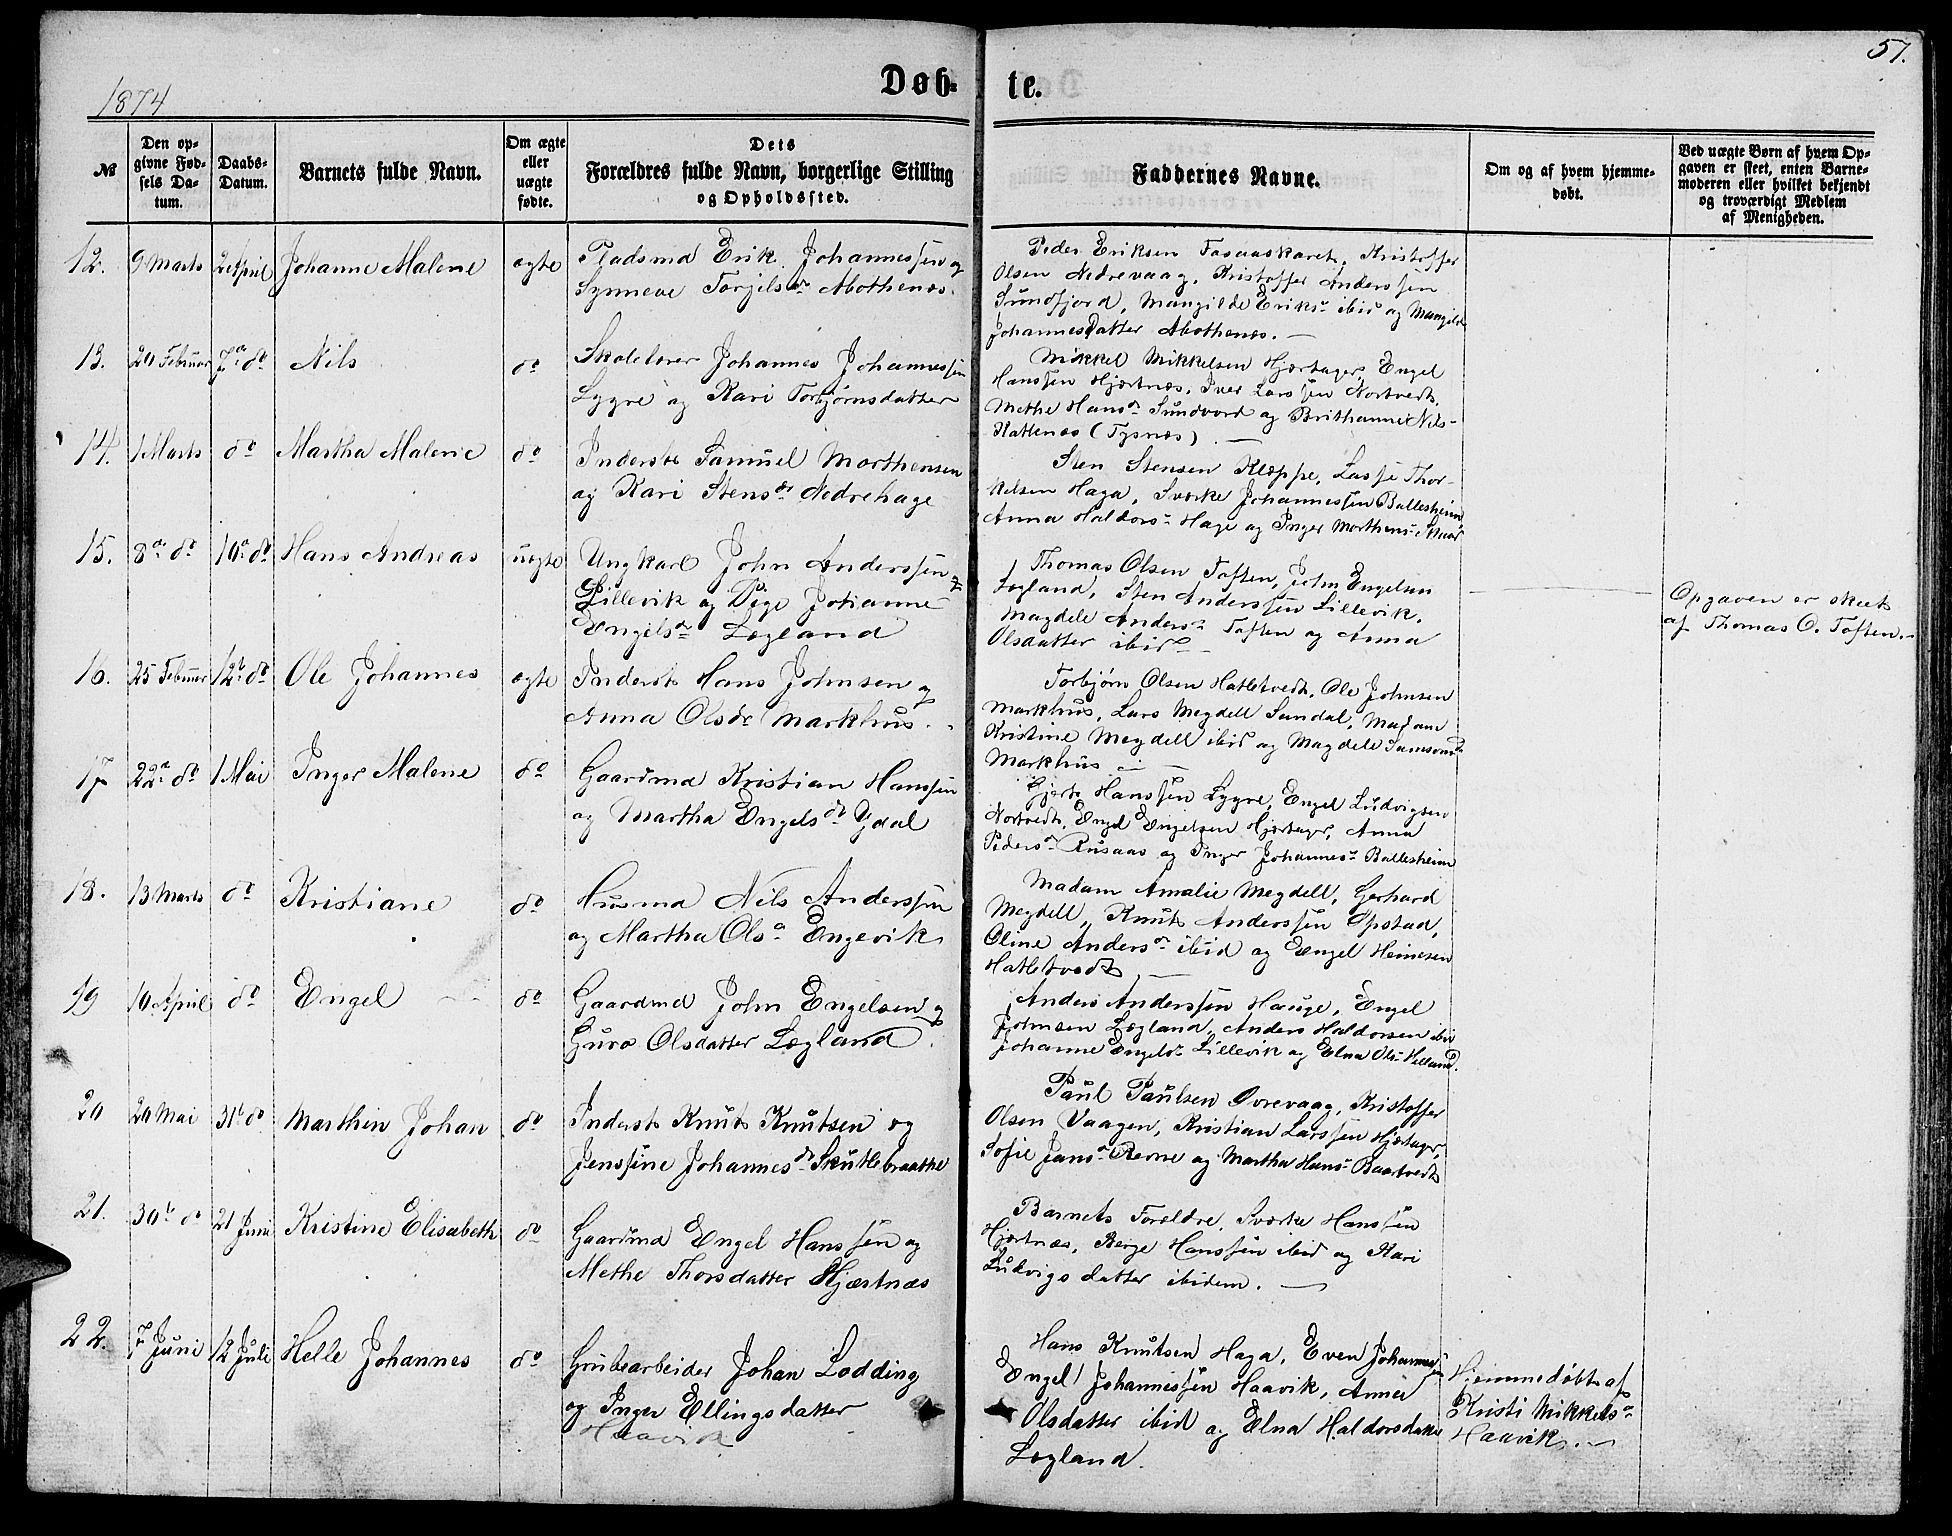 57.
1874
Døb-
te.
№
Den op-
givne Fød-
sels Da-
tum.
Daabs-
Datum.
Barnets fulde Navn.
Om ægte
eller
uægte
fødte.
Dets
Forældres fulde Navn, borgerlige Stilling
og Opholdssted.
Faddernes Navne.
Om og af hvem hjemme-
døbt.
Ved uægte Børn af hvem Op-
gaven er skeet, enten Barne-
moderen eller hvilket bekjendt
og troværdigt Medlem
af Menigheden.
12.
9 Marts
2 April
Johanne Malene
ægte
Pladsmd Erik Johannessen og
Synneve Torjilsdr
Peder Eriksen Fosaaskaret, Kristoffer
Olsen Nedrevaag, Kristoffer Anderssen
Sundfjord, Mangilde Eriksdr ibid og Mangilde
Johannesdatter
13.
20 Februar
7de do
Nils
do
Skolelærer Johannes Johannessen
Lygre og Kari Torbjørnsdatter
Mikkel Mikkelsen Hjærtager, Engel
Hanssen Hjærtnæs, Iver Larssen Nortvedt,
Methe Hansdr Sundvord og Brithanne Nils-
Hattenæs (Tysnæs).
14.
1 Marts
do
Martha Malene
do
Inderste Samuel Morthensen
og Kari Stensdr Nedrehage
Sten Stensen Kleppe, Lasse Thor-
kelsen Haga, Sverke Johannessen Ballesheim,
Anna Haldors- Hage og Inger Morthens-
15.
8de do
10de do
Hans Andreas
uægte
Ungkarl John Anderssen
Lillevik og Pige Johanne
Engelsdr Lægland
Thomas Olsen Toften, John Engelsen
Lægland, Sten Anderssen Lillevik,
Magdele Anders- Toften og Anna
Olsdatter ibid
Opgaven er skeet
af Thomas O. Toften.
16.
25 Februar
12te do
Ole Johannes
ægte
Inderste Hans Johnsen og
Anna Olsdr Markhus.
Torbjørn Olsen Hatletvedt, Ole Johnsen
Markhus, Lars Megdell Sundal, Madam
Kristine Megdell ibid og Magdele Samsonsd
Markhus
17
22de do
1 Mai
Inger Malene
do
Gaardmd Kristian Hanssen
og Martha Engelsdr Ydal
Gjert Hanssen Lygre, Engel Ludvigsen
Nortvedt, Engel Engelsen Hjærtager, Anna
Pedersdr Rusaas og Inger Johannes- Ballesheim
18.
13 Marts
do
Kristiane
do
Husmd Nils Anderssen
og Martha Olsdr Engevik
Madam Amalie Megdell, Gerhard
Megdell, Knut Anderssen Opstad,
Oline Andersdr ibid og Engel Heinesen
Hatletvedt
19
10 April
do
Engel
do
Gaardmd John Engelsen og
Guro Olsdatter Lægland.
Anders Anderssen Hauge, Engel
Johnsen Lægland, Anders Haldorsen ibid
Johanne Engelsdr Lillevik og Elna Ols- Helland.
20
20 Mai
31te do
Marthin Johan
do
Inderst Knut Knutsen og
Jenssine Johannesdr Skutlebraathe
Paul Paulsen Øvrevaag, Kristoffer
Olsen Vaagen, Kristian Larssen Hjærtager,
Sofie Jansdr Rerne og Martha Hans- Baartvedt
21.
30te do
21 Juni
Kristine Elisabeth
do
Gaardmd Engel Hanssen og
Methe Thorsdatter Hjærtnæs
Barnets Forældre, Sverke Hanssen
Hjærtnæs, Berge Hanssen ibid og Kari
Ludvigsdatter ibidem.
22.
7 Juni
12 Juli
Helle Johannes
do
Grubearbeider Johan Lødding
og Inger Ellingsdatter
Haavik
Hans Knutsen Haga, Even Johannessen
Engel Johannessen Haavik, Anna
Olsdatter ibid og Elna Haldorsdatter
Lægland.
Hjemmedøbt af
Kristi Mikkelsdr
Haavik.